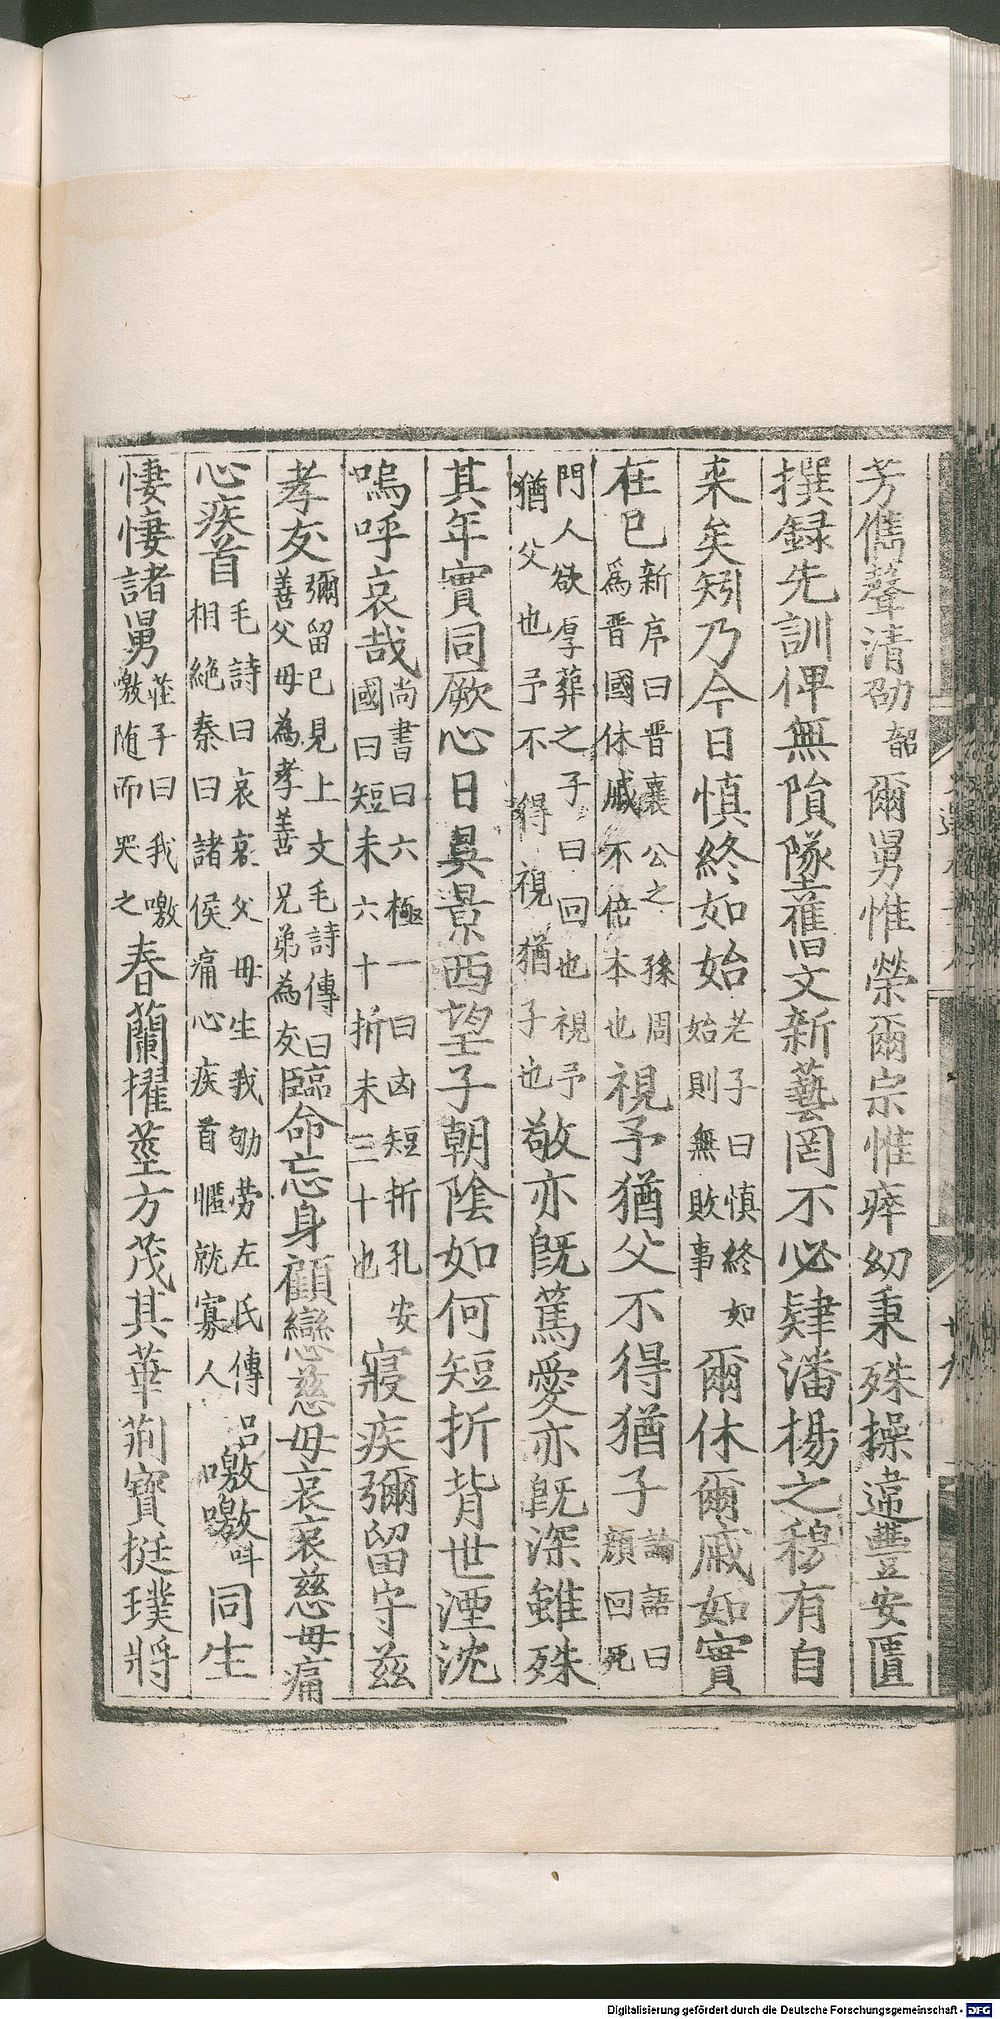 芳儁聲清劭韶爾舅惟榮爾宗惟瘁幼秉殊操違豐安匱
撰録先訓俾無隕墜舊文新藝罔不必肄潘楊之穆有自
来矣矧乃今日慎終如始老子曰慎終如始則無敗事爾休爾戚如實
在已新序曰晋襄公之孫周爲晋國休戚不倍本也視予猶父不得猶子論語曰顔回死
門人欲厚葬之子曰回也視予猶父也予不得視猶子也敬亦既篤愛亦既深雖殊
其年實同厥心日昃景西望子朝陰如何短折背世湮沈
嗚呼哀哉尚書曰六極一曰凶短折孔安國曰短未六十折未三十也寢疾彌留守兹
孝友彌留已見上文毛詩傳曰善父母為孝善兄弟為友臨命忘身顧戀慈母哀哀慈母痛
心疾首毛詩曰哀哀父母生我劬勞左氏傳吕相絶秦曰諸侯痛心疾首慝就寡人噭噭叫同生
悽悽諸舅莊子曰我噭噭随而哭之春蘭擢莖方茂其華荊寳挺璞將
Digitalisierung gefördert durch die Deutsche Forschungsgemeinschaft - DFG